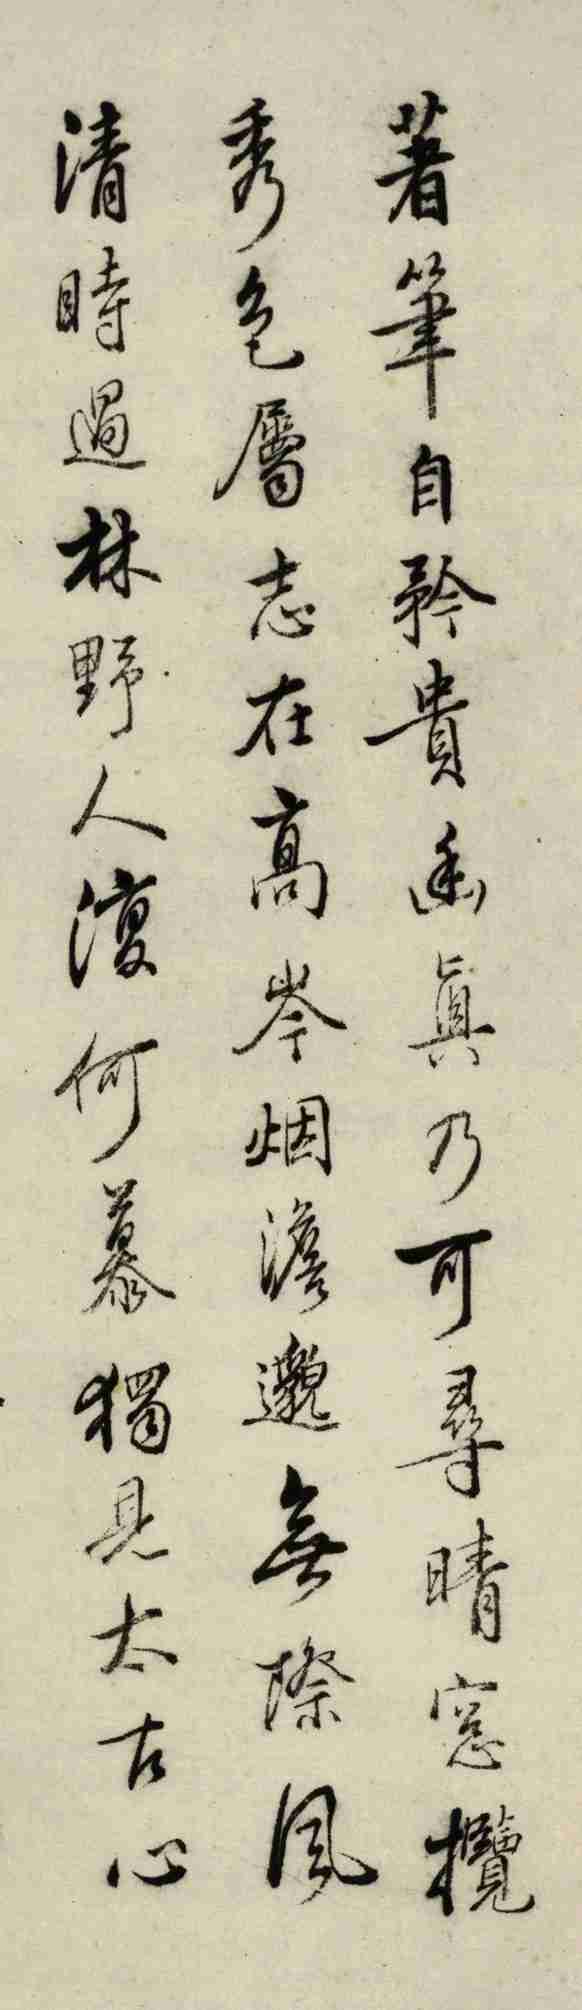 著筆自矜貴幽真乃可尋晴窓攬
秀色屬志在高岑烟澹邈無際風
清時過林野人復何慕獨見太古心